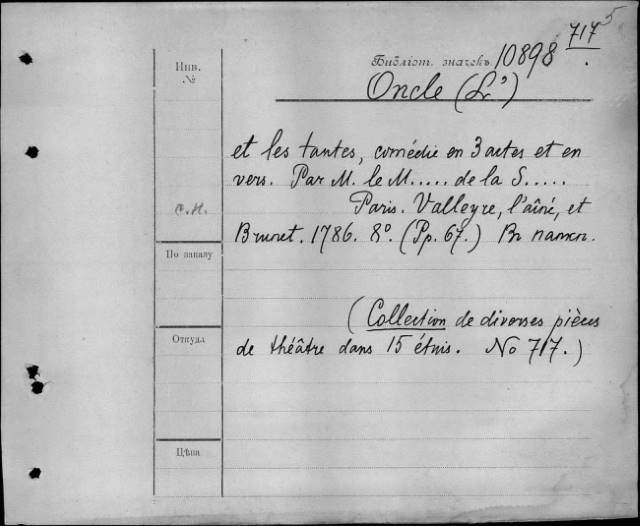 717 5
Инв.
№
Библіот. значекъ 10898
Oncle (L')
et les tantes, comédie en 3 actes et en
vers. Par M. le M..... de la S.....
С.И.
Paris. Valleyre, l'aîné, et
Brunet. 1786. 8º. (Pp. 67.) Въ папкѣ.
По заказу
(Collection de diverses pièces
Откуда
de théâtre dans 15 étuis. No 717.)
Цѣна